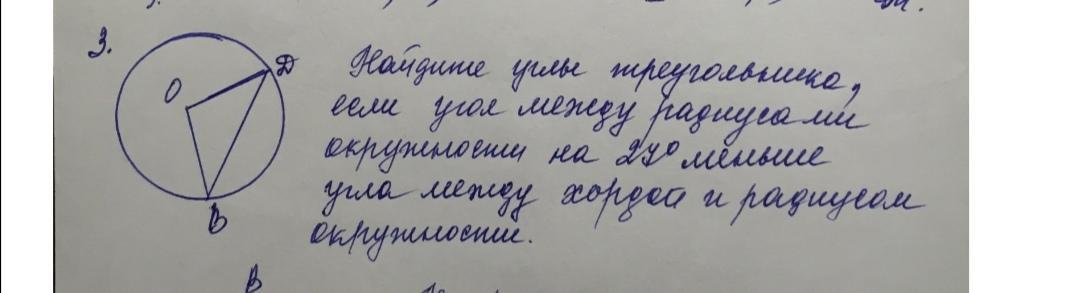 3.
О
Д
В
Найдите углы треугольника,
если угол между радиусами
окружности на 27° меньше
угла между хордой и радиусом
окружности.
В